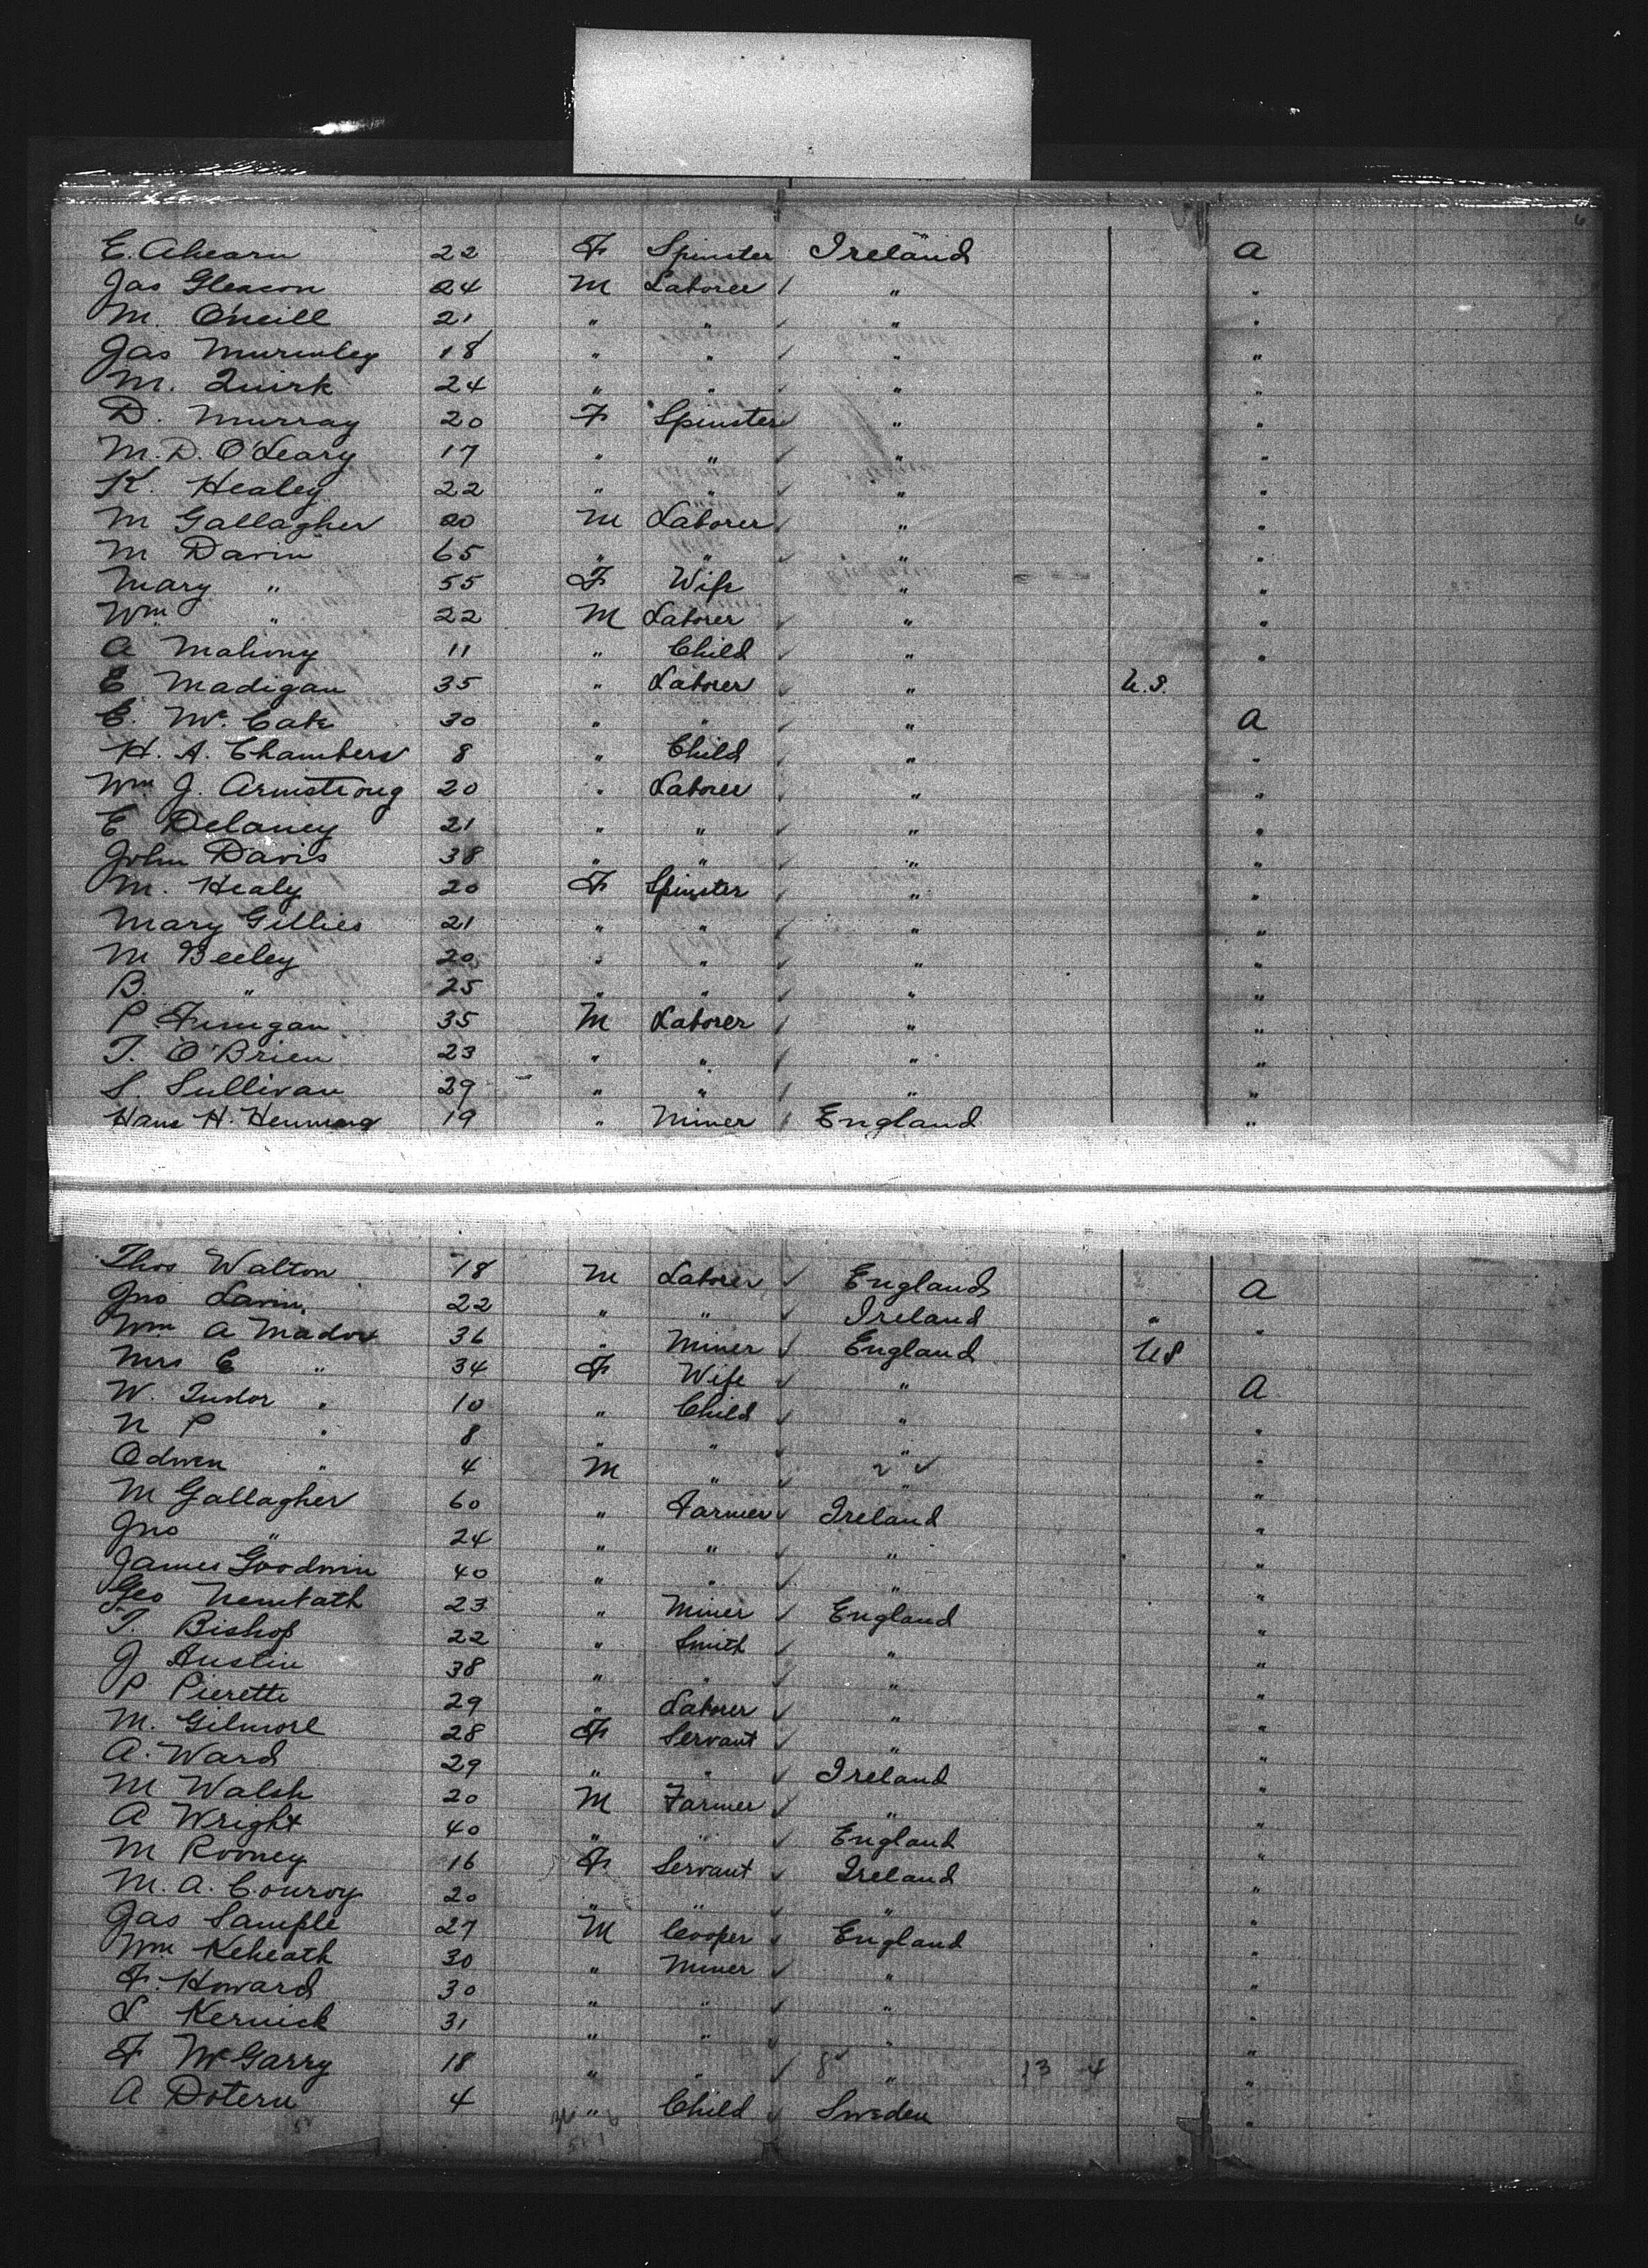 6
E. Ahearn 22 F Spinster Ireland A
Jas Gleason 24 M Laborer / " "
M. O'neill 21 " " ✓ " "
Jas 18 " " ✓ " "
M. Quirk 24 " " ✓ " "
D. Murray 20 F Spinster ✓ " "
M. D. O'Leary 17 " " ✓ " "
K. Healey 22 " " ✓ " "
M Gallagher 20 M Laborer ✓ " "
M Davin 65 " " ✓ " "
Mary " 55 F Wife " "
Wm " 22 M Laborer ✓ " "
A Mahony 11 " Child ✓ " "
E. Madigan 35 " Laborer ✓ " U.S.
E. Mc. Cabe 30 " " ✓ " A
H. A. Chambers 8 " Child ✓ " "
Wm J. Armstrong 20 " Laborer ✓ " "
E Delaney 21 " " ✓ " "
John Davis 38 " " ✓ " "
M. Healy 20 F Spinster ✓ " "
Mary Gillies 21 " " ✓ " "
M Beeley 20 " " ✓ " "
B. " 25 " " ✓ " "
P. Finigan 35 M Laborer / " "
T. O'Brien 23 " " / " "
S. Sullivan 29 " " / " "
Hans H. Henning 19 " Miner / England "
Thos Walton 18 M Laborer ✓ England A
Jno Lavin 22 " " ✓ Ireland " "
Wm A Mador 36 " Miner ✓ England US
Mrs E " 34 F Wife ✓ " A
W. Tudor " 10 " Child ✓ " "
N P " 8 " " ✓ " "
" 4 M " ✓ " "
M Gallagher 60 " Farmer ✓ Ireland "
Jno " 24 " " ✓ " "
James Goodwin 40 " " ✓ " "
Geo 23 " Miner ✓ England "
T. Bishop 22 " Smith ✓ " "
J Austin 38 " " ✓ " "
P Pierette 29 " Laborer ✓ " "
M. Gilmore 28 F Servant ✓ " "
A. Ward 29 " " ✓ Ireland "
M Walsh 20 M Farmer ✓ " "
A Wright 40 " " ✓ England "
M Rooney 16 F Servant ✓ Ireland "
M. A. Conroy 20 " " ✓ " "
Jas Sample 27 M Cooper ✓ England "
Wm Keheath 30 " Miner ✓ " "
F. Howard 30 " " ✓ " "
L Kernick 31 " " ✓ " "
F McGarry 18 " " ✓ 8 " 13 4 "
A Dotern 4 " Child ✓ Sweden "